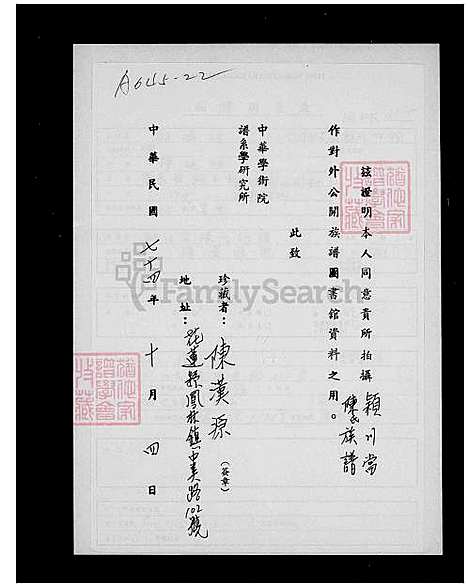 A645-22
茲證明本人同意貴所拍攝 穎川堂
陳氏族譜
作對外公開族譜圖書館資料之用。
此致
中華學術院
譜系學研究所
珍藏者：陳漢源（簽章）
地址：花蓮縣鳳林鎮中美路102號
中華民國七十四年十月四日
FamilySearch